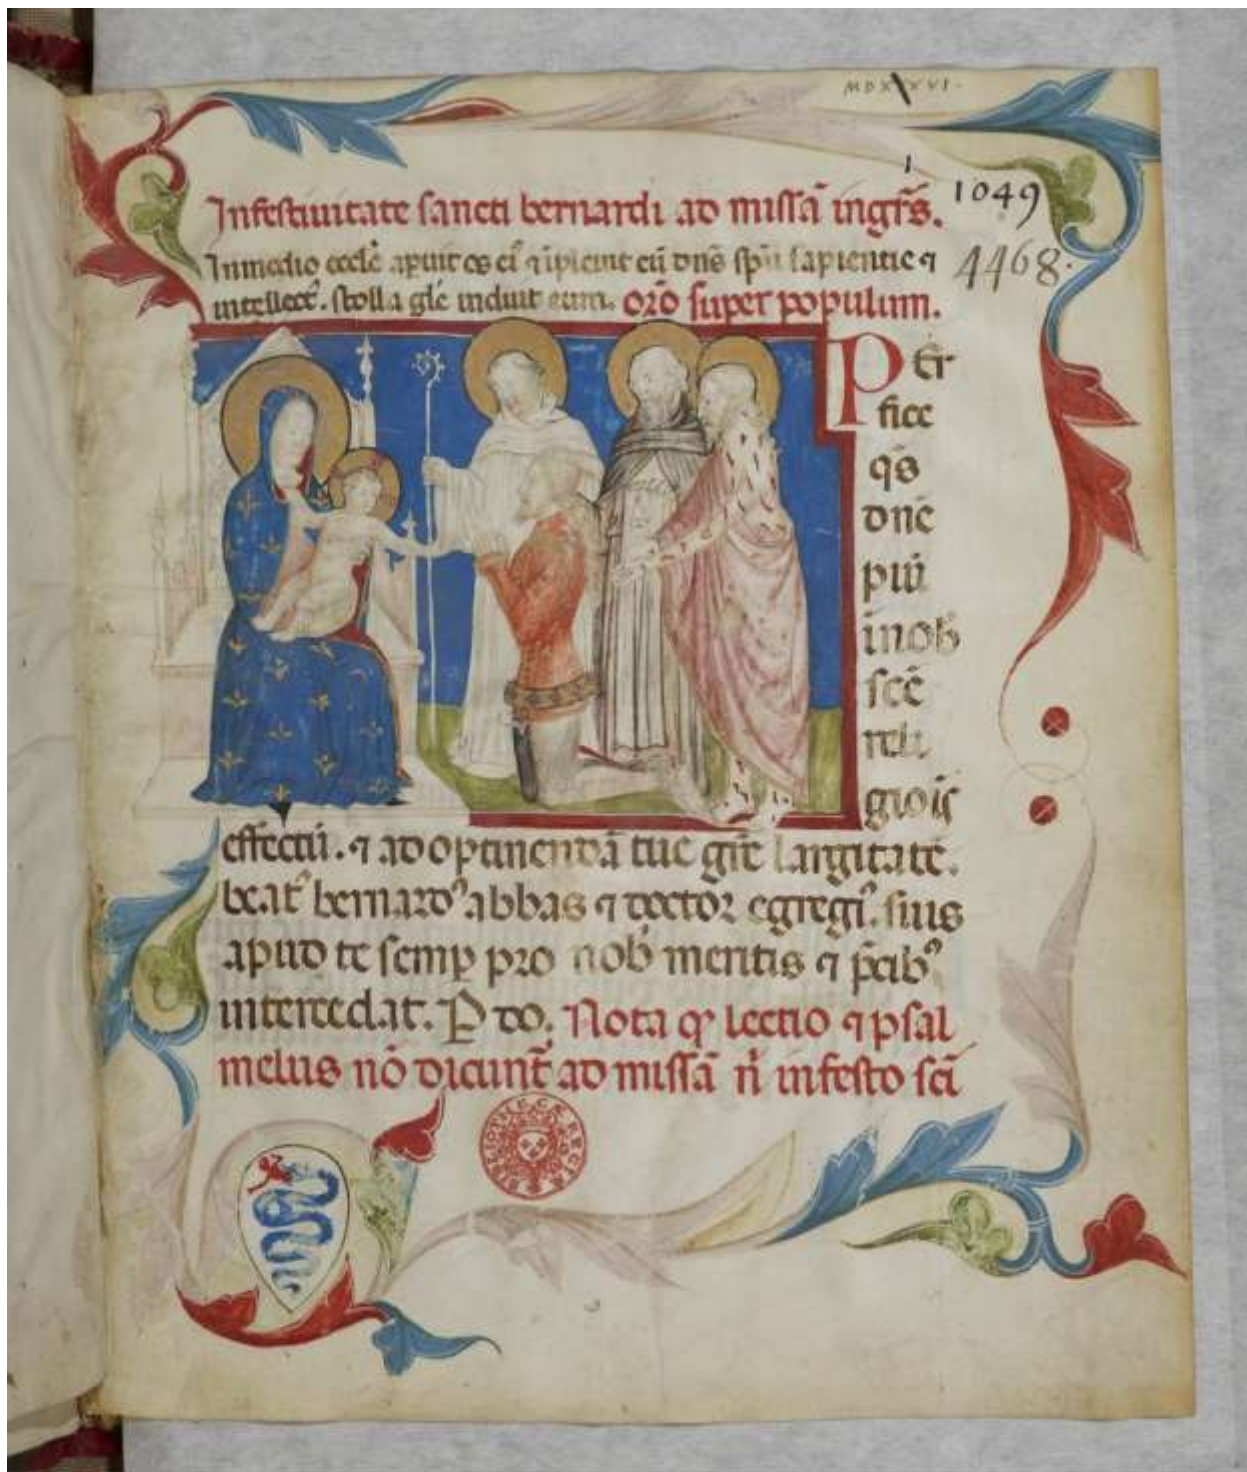 MDXXXVI.
1
1049
4468.
Infestiuitate sancti bernardi ad missã ingrs̃.
Inmedio eccłe aperuit os eiꝰ ⁊ ĩpleuit eũ dn̄s sp̃u sapientie ⁊
intellectꝰ. stolla głe induit eum. or̃o super populum.
PEr
fice
qs̄
dne
piũ
inob
scẽ
reli
giois
effectũ. ⁊ ad optinendã tue gr̃e largitatẽ.
beatꝰ bernardꝰ abbas ⁊ doctor egregiꝰ. suis
apud te semꝑ pro nob meritis ⁊ p̃cibꝰ
intercedat. P do. Nota ꝙ lectio ⁊ psal
melus nõ dicunt̃ ad missã ñ infesto scĩ
BIBLIOTHECÆ REGIÆ